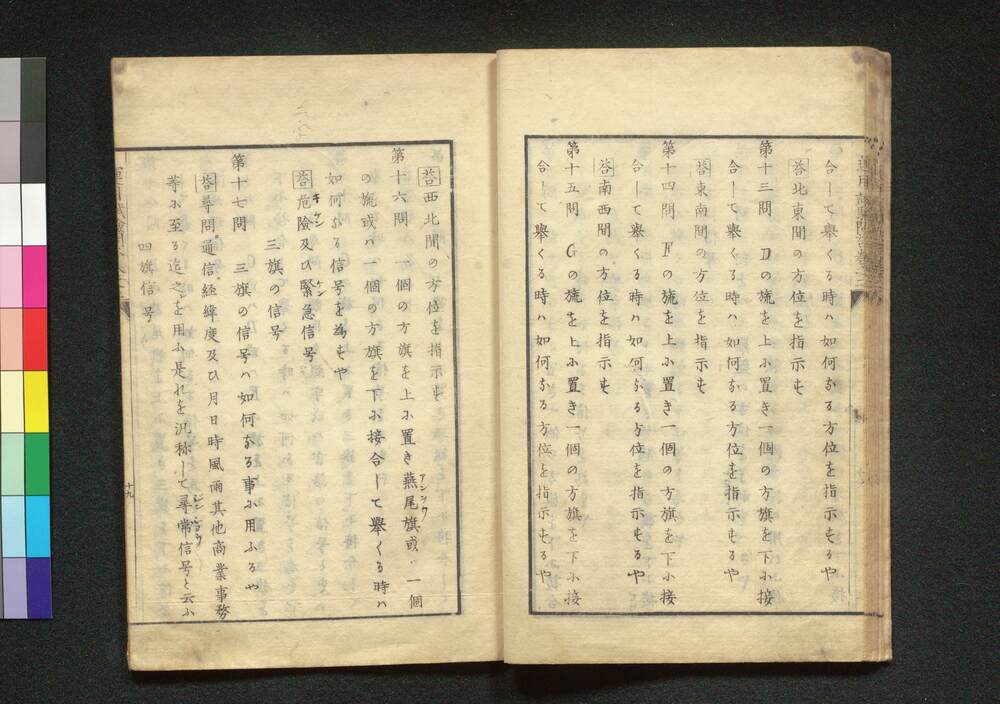 合して舉くる時ハ如何なる方位を指示するや
答北東間の方位を指示す
第十三問　Dの旒を上に置き一個の方旗を下に接
合して舉くる時ハ如何なる方位を指示するや
答東南間の方位を指示す
第十四問　Fの旒を上に置き一個の方旗を下に接
合して舉くる時ハ如何なる方位を指示するや
答南西間の方位を指示す
第十五問　Gの旒を上に置き一個の方旗を下に接
合して舉くる時ハ如何なる方位を指示するや
答西北間の方位を指示す
第十六問　一個の方旗を上に置き燕尾旗或ハ一個
の旒或ハ一個の方旗を下に接合して舉くる時ハ
如何なる信号を為すや
答危險及ひ緊急信号
三旗の信号
第十七問　三旗の信号ハ如何なる事に用ふるや
答尋問通信経緯度及ひ月日時風雨其他商業事務
等に至る迄之を用ふ是れを汎称して尋常信号と云ふ
四旗信号
十九